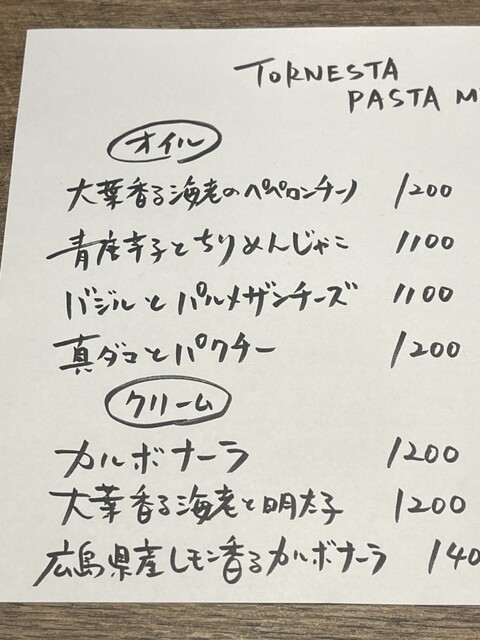 TORNESTA
PASTA M
オイル
大葉香る海老のペペロンチーノ 1200
青唐辛子とちりめんじゃこ 1100
バジルとパルメザンチーズ 1100
真ダコとパクチー 1200
クリーム
カルボナーラ 1200
大葉香る海老と明太子 1200
広島県産レモン香るカルボナーラ 140